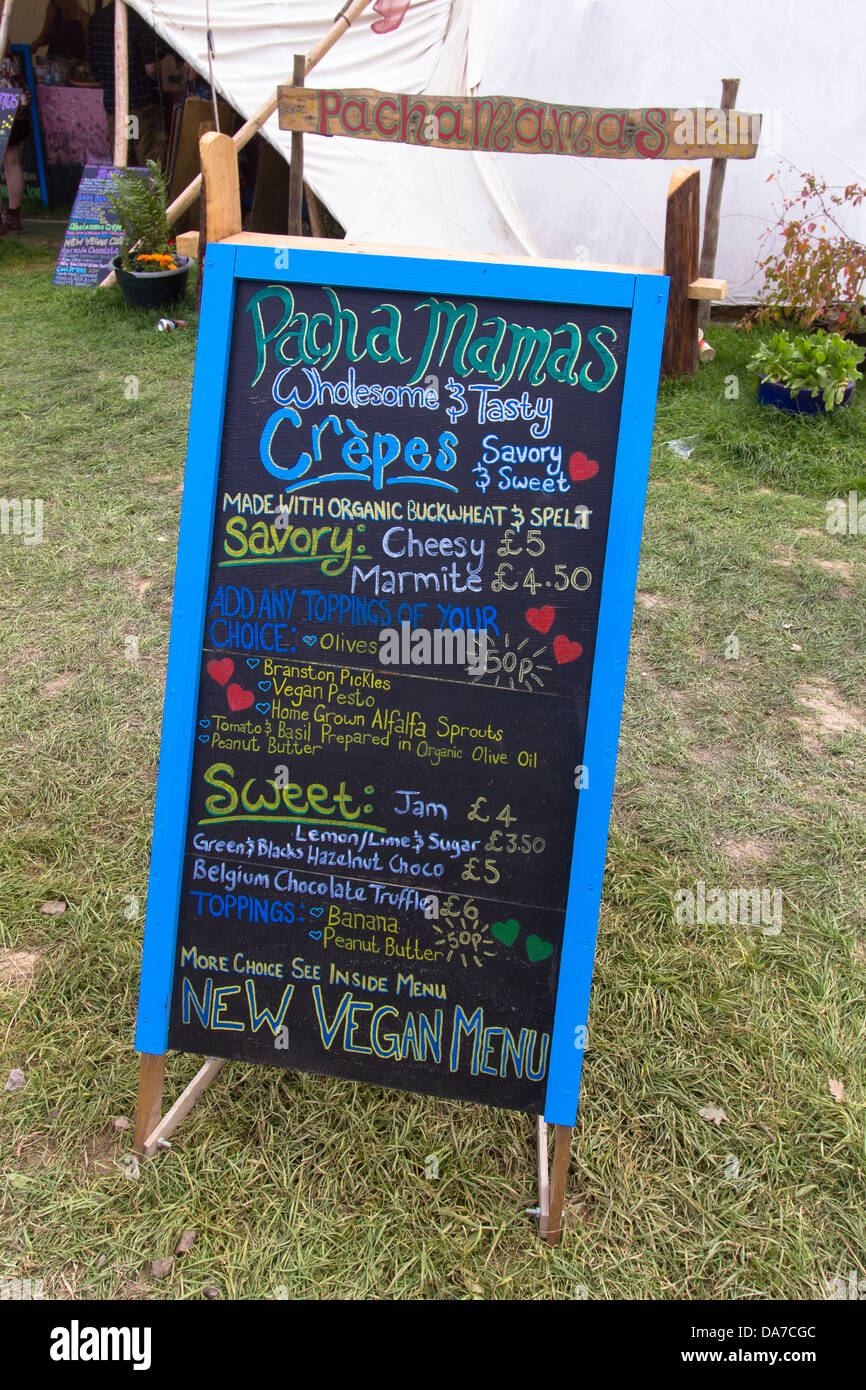 PachaMamas
Pacha Mamas
Wholesome & Tasty
Crèpes Savory
& Sweet
MADE WITH ORGANIC BUCKWHEAT & SPELT
Savory: Cheesy £5
Marmite £4.50
ADD ANY TOPPINGS OF YOUR
CHOICE: Olives 50p
Branston Pickles
Vegan Pesto
Home Grown Alfalfa Sprouts
Tomato & Basil Prepared in Organic Olive Oil
Peanut Butter
Sweet: Jam £4
Lemon/Lime & Sugar £3.50
Green & Blacks Hazelnut Choco £5
Belgium Chocolate Truffle £6
TOPPINGS: Banana
Peanut Butter 50p
MORE CHOICE SEE INSIDE MENU
NEW VEGAN MENU
alamy
Image ID: DA7CGC
www.alamy.com